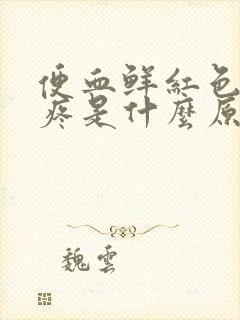 便血鲜红色
疼是什麼原
魏雲